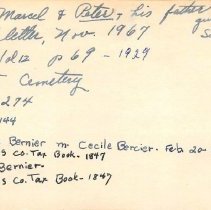 Marcel & Peter, his father
letter, Nov. 1967
p 69 - 1929
Cemetery
274
144
Bernier m Cecile Bercier. Feb 20
s Co. Tax Book. 1847
Bernier.
s Co. Tax Book - 1847